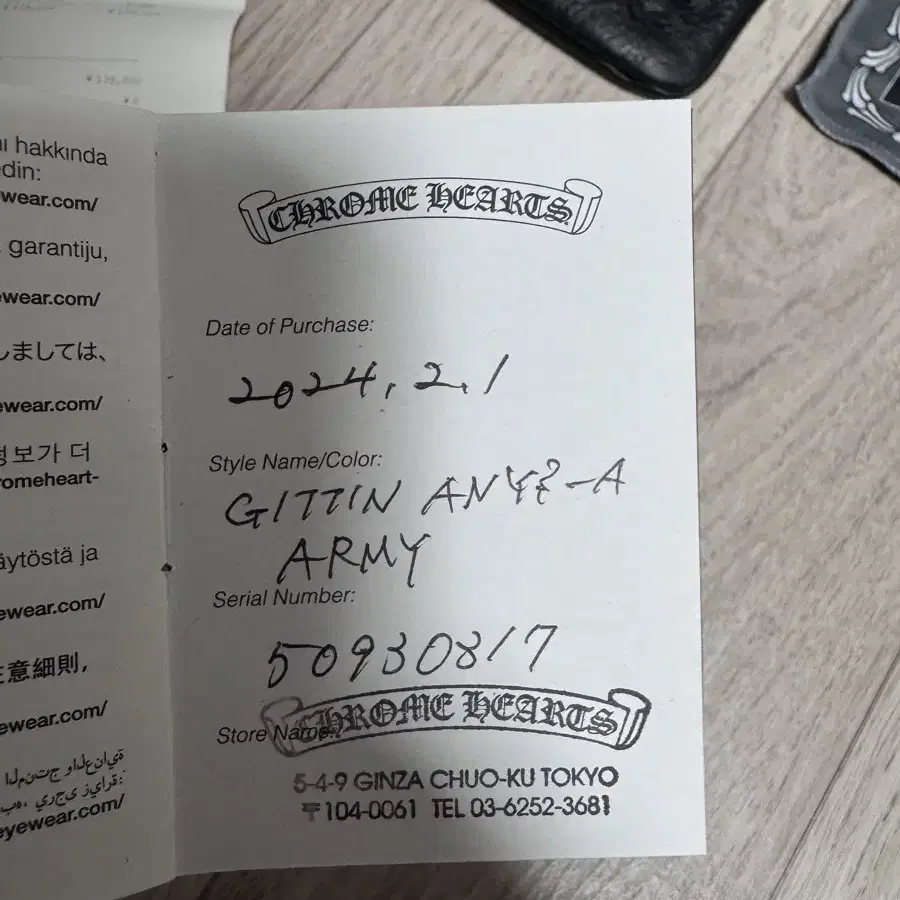 hakkında
edin:
wear.com/
garantiju,
ewear.com/
しましては、
ewear.com/
정보가 더
romeheart-
äytöstä ja
eyewear.com/
意細則,
eyewear.com/
eyewear.com/
CHROME HEARTS
Date of Purchase:
2024. 2. 1
Style Name/Color:
GITTIN ANY?-A
ARMY
Serial Number:
50930817
Store Name:
CHROME HEARTS
5-4-9 GINZA CHUO-KU TOKYO
〒104-0061 TEL 03-6252-3681